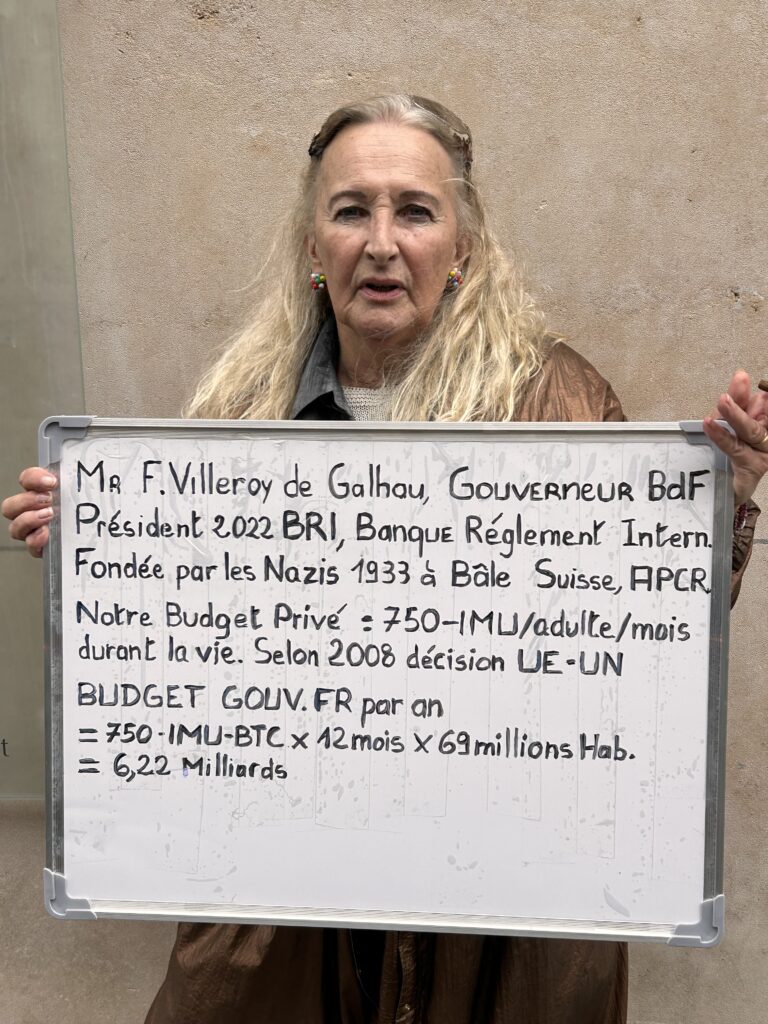 MR F. Villeroy de Galhau, GOUVERNEUR BdF
Président 2022 BRI, Banque Réglement Intern.
Fondée par les Nazis 1933 à Bâle Suisse, APCR
Notre Budget Privé = 750-IMU/adulte/mois
durant la vie. Selon 2008 décision UE-UN
BUDGET GOUV. FR par an
= 750-IMU-BTC x 12 mois x 69 millions Hab.
= 6,22 Milliards
t